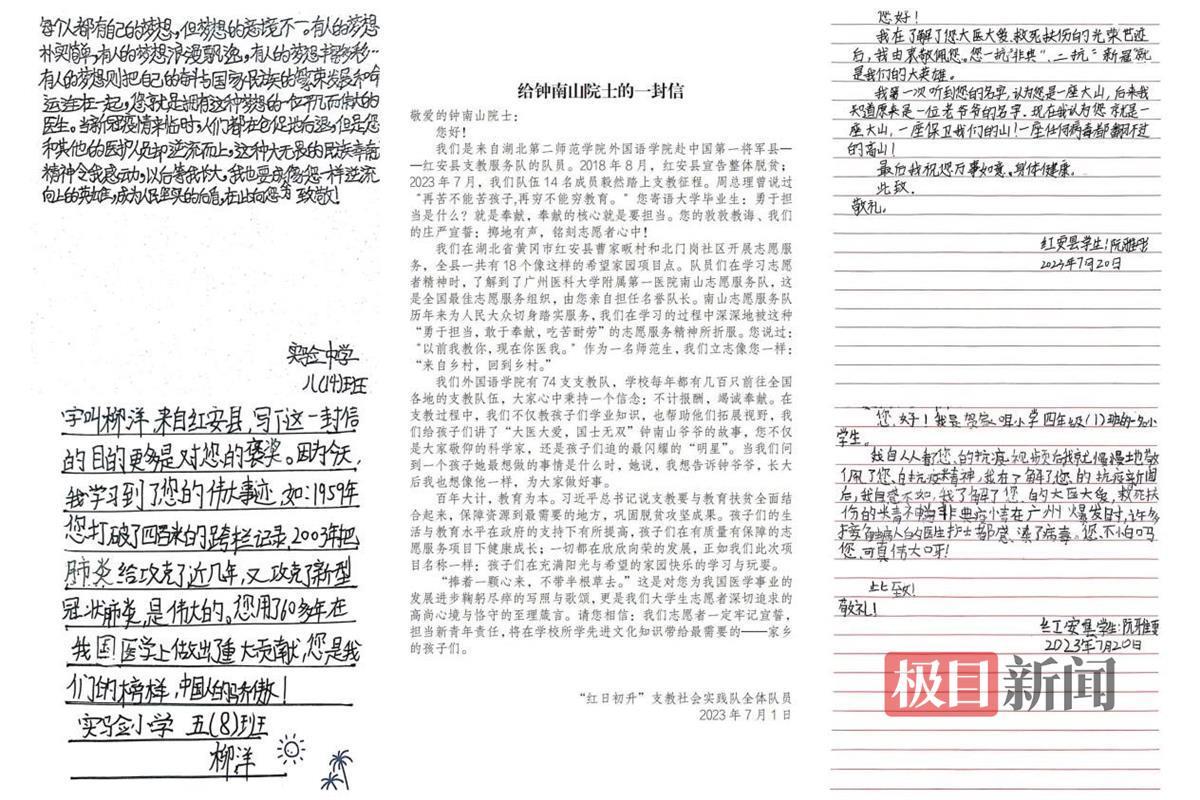 每个人都有自己的梦想，但梦想的意境不一。有人的梦想
朴实简单，有人的梦想浪漫飘逸，有人的梦想丰富多彩…
有人的梦想则把自己的前估国家民族的繁荣发展和命
运连在一起，您就是拥有这种梦想的一位平凡而伟大的
医生。当新冠疫情来临时，人们都在仓促把后退，但是您
和其他的医护人员却逆流而上，这种大无畏的民族奉献
精神令我感动，以后等我长大。我也要成像您一样逆流
向上的英雄，成为人民坚实的后盾，在此向您致敬！
实验中学
八(14)班
字叫柳洋，来自红安县，写下这一封信
的目的更多是对您的褒奖。因为今天，
我学习到了您的伟大事迹，如：1959年
您打破了四百米的跨栏记录，2003年把
肺炎给攻克了近几年，又攻克了新型
冠状肺炎，是伟大的。您用了60多年在
我国医学上做出了重大贡献，您是我
们的榜样，中国人的骄傲！
实验小学 五(8)班
柳洋
给钟南山院士的一封信
敬爱的钟南山院士：
您好！
我们是来自湖北第二师范学院外国语学院赴中国第一将军县—
—红安县支教服务队的队员。2018年8月，红安县宣告整体脱贫；
2023年7月，我们队伍14名成员毅然踏上支教征程。周总理曾说过
“再苦不能苦孩子，再穷不能穷教育。”您寄语大学毕业生：勇于担
当是什么？就是奉献，奉献的核心就是要担当。您的敦敦教诲、我们
的庄严宣誓：掷地有声，铭刻志愿者心中！
我们在湖北省黄冈市红安县曹家畈村和北门岗社区开展志愿服
务，全县一共有18个像这样的希望家园项目点。队员们在学习志愿
者精神时，了解到了广州医科大学附属第一医院南山志愿服务队，这
是全国最佳志愿服务组织，由您亲自担任名誉队长。南山志愿服务队
历年来为人民大众切身踏实服务，我们在学习的过程中深深地被这种
“勇于担当，敢于奉献，吃苦耐劳”的志愿服务精神所折服。您说过：
“以前我教你，现在你医我。”作为一名师范生，我们立志像您一样：
“来自乡村，回到乡村。”
我们外国语学院有74支支教队，学校每年都有几百只前往全国
各地的支教队伍，大家心中秉持一个信念：不计报酬，竭诚奉献。在
支教过程中，我们不仅教孩子们学业知识，也帮助他们拓展视野，我
们给孩子们讲了“大医大爱，国士无双”钟南山爷爷的故事，您不仅
是大家敬仰的科学家，还是孩子们追的最闪耀的“明星”。当我们问
到一个孩子她最想做的事情是什么时，她说，我想告诉钟爷爷，长大
后我也想像他一样，为大家做好事。
百年大计，教育为本。习近平总书记说支教要与教育扶贫全面结
合起来，保障资源到最需要的地方，巩固脱贫攻坚成果。孩子们的生
活与教育水平在政府的支持下有所提高，孩子们在有质量有保障的志
愿服务项目下健康成长；一切都在欣欣向荣的发展，正如我们此次项
目名称一样：孩子们在充满阳光与希望的家园快乐的学习与玩耍。
“捧着一颗心来，不带半根草去。”这是对您为我国医学事业的
发展进步鞠躬尽瘁的写照与歌颂，更是我们大学生志愿者深切追求的
高尚心境与恪守的至理箴言。请您相信：我们志愿者一定牢记宣誓，
担当新青年责任，将在学校所学先进文化知识带给最需要的——家乡
的孩子们。
“红日初升”支教社会实践队全体队员
2023年7月1日
您好！
我在了解了您大医大爱、救死扶伤的光荣芭迹
后，我由衷敬佩您。您一抗“非典”、二抗“新冠”就
是我们的大英雄。
我第一次听到您的名字，认为您是一座大山，后来我
知道原来是一位老爷爷的名字。现在我认为您亦就是一
座大山，一座保卫我们的山！一座任何病毒都翻不过
的高山！
最后我祝您万事如意，身体健康。
此致，
敬礼。
红安县学生：阮雅
2023年7月20日
您，好！我是贺家咀小学四年级(1)班的一名小
学生。
我自从看您的抗疫视频后我就慢慢地敬
佩了您、抗疫精神，我在了解了您的抗疫新闻
后，我自愧不如，我了解了您的大医大爱，救死扶
伤的 非典疫情在广州爆发时，许多
接 病人的医护士都感染了病毒。您不怕吗
您，可真伟大呀！
此致！
敬礼！
红安县学生：阮雅
2023年7月20日
极目新闻